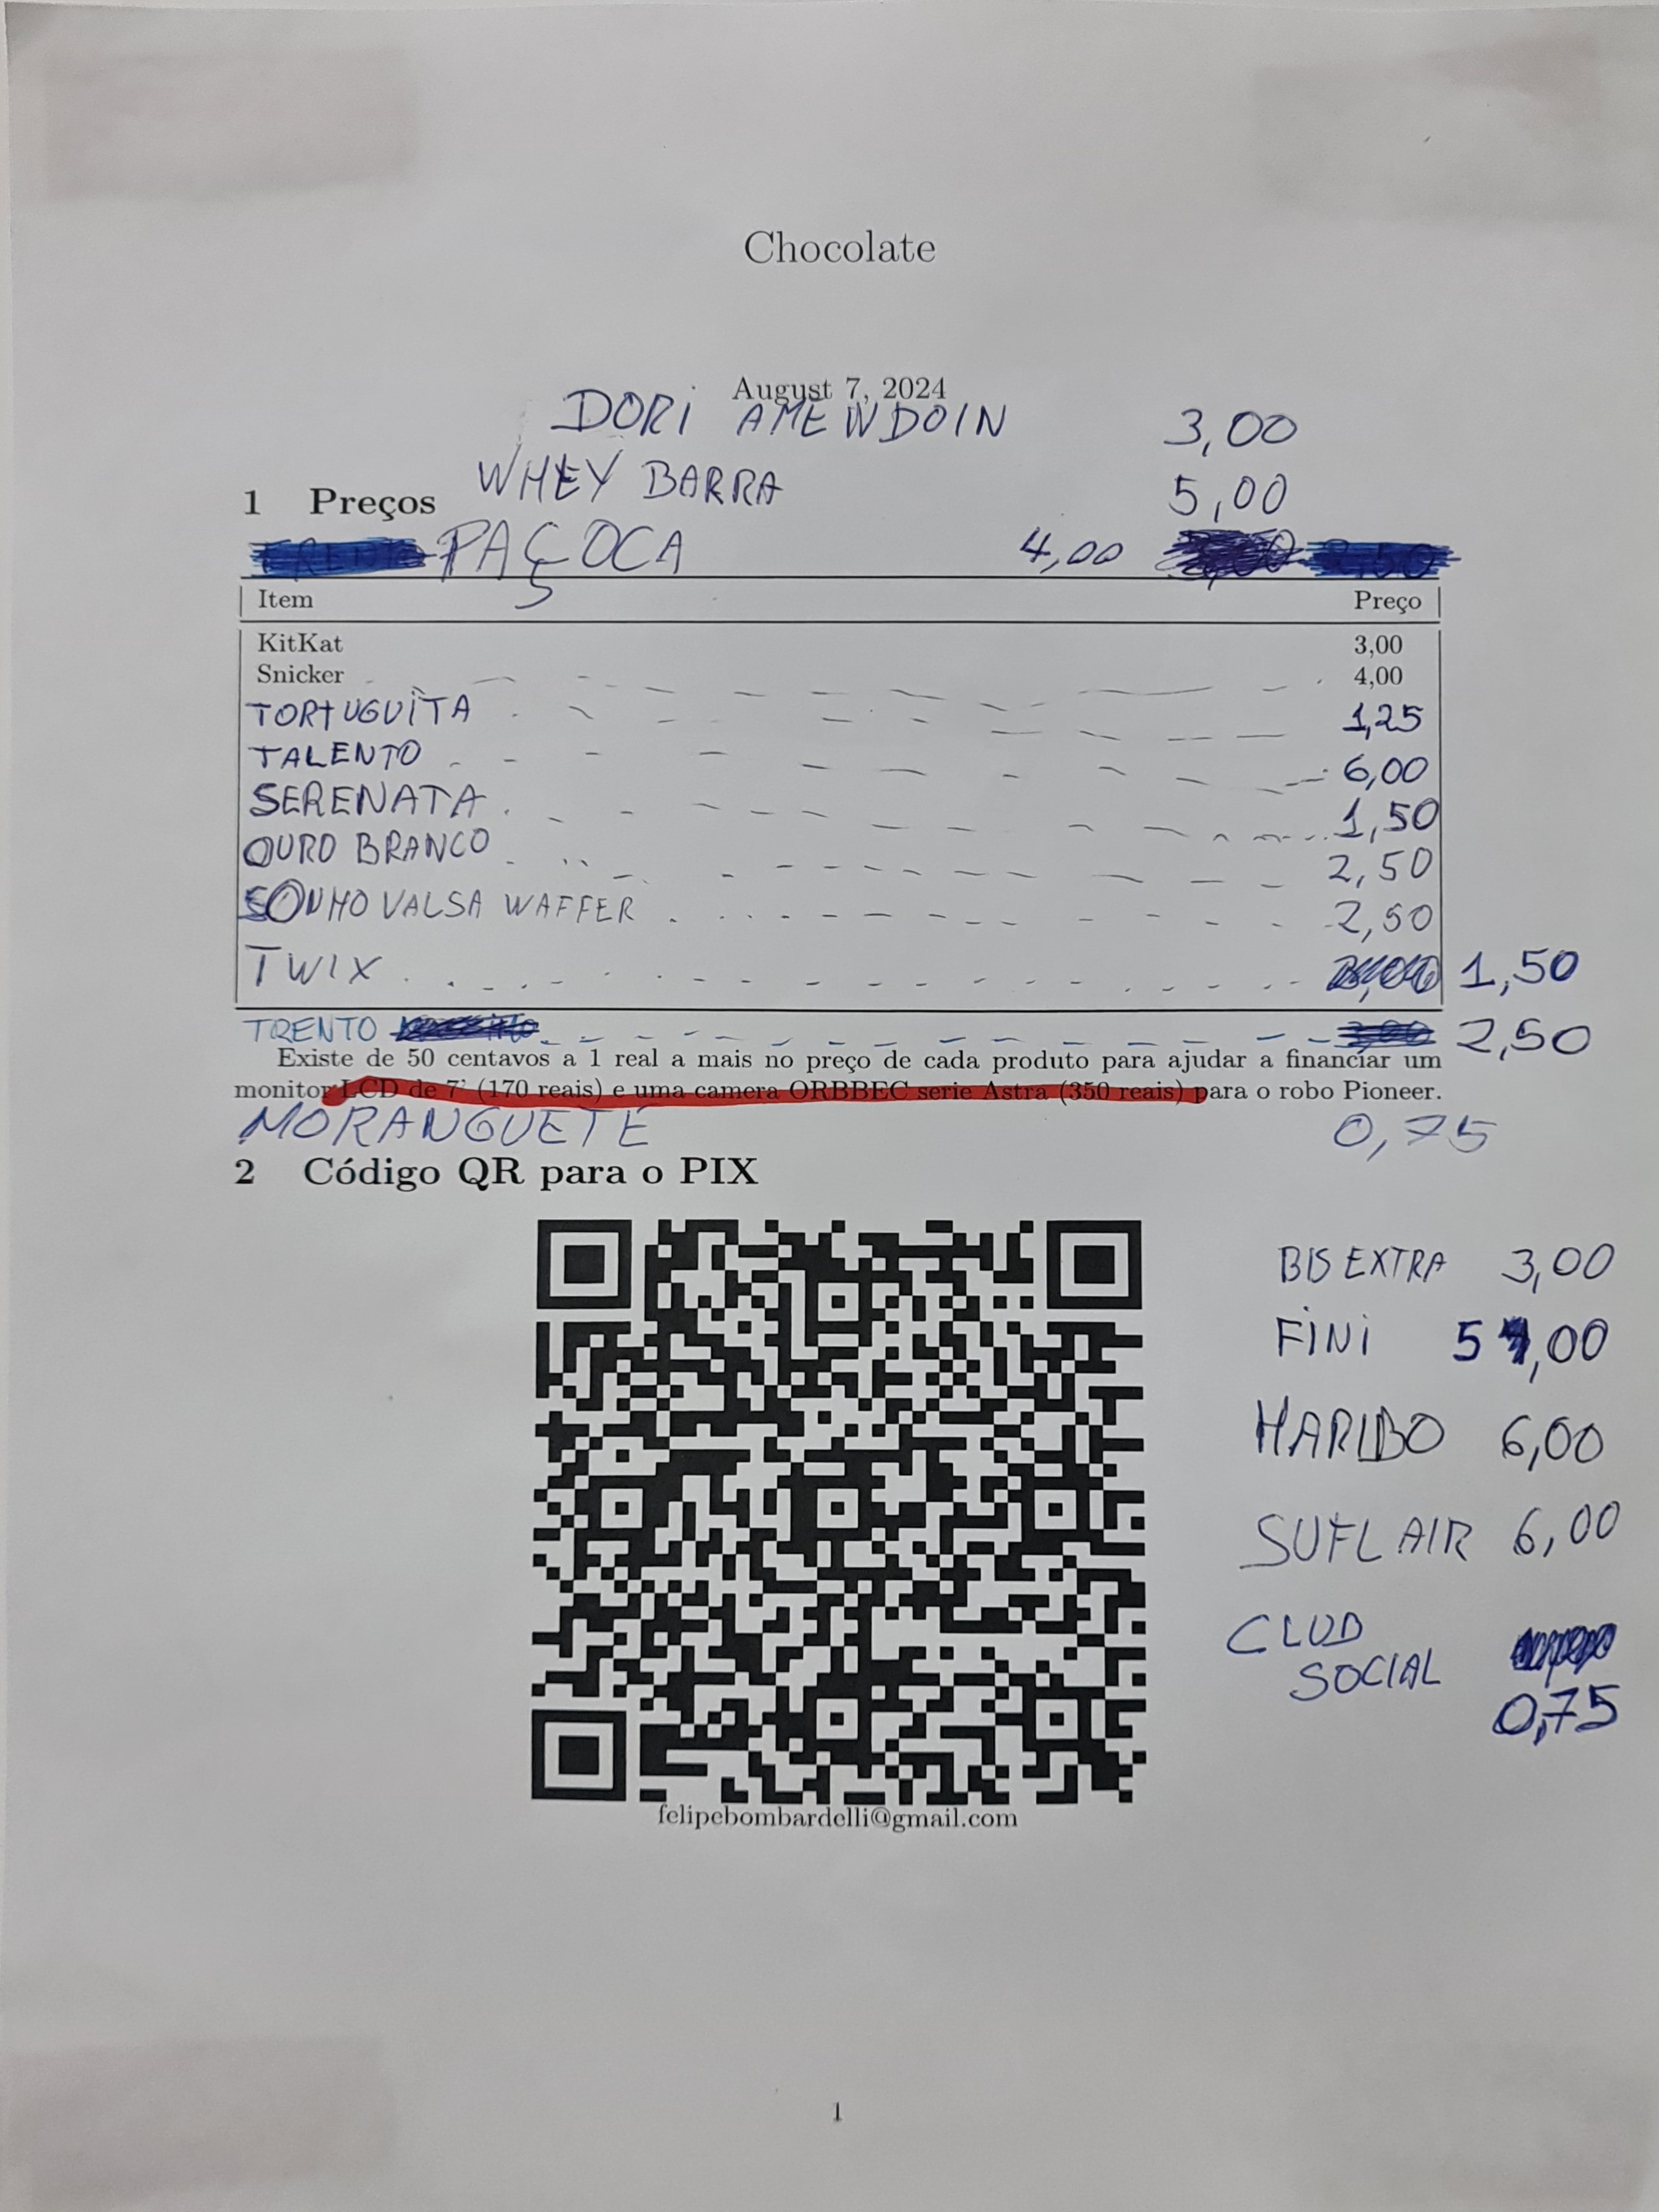 Chocolate
August 7, 2024
DORI AMEWDOIN 3,00
WHEY BARRA 5,00
1 Preços
PAÇOCA 4,00
Item Preço
KitKat 3,00
Snicker 4,00
TORTUGUITA 1,25
TALENTO 6,00
SERENATA 1,50
OURO BRANCO 2,50
SONHO VALSA WAFFER 2,50
TWIX 1,50
TRENTO 2,50
Existe de 50 centavos a 1 real a mais no preço de cada produto para ajudar a financiar um
monitor LCD de 7' (170 reais) e uma camera ORBBEC serie Astra (350 reais) para o robo Pioneer.
MORANGUETE 0,75
2 Código QR para o PIX
BIS EXTRA 3,00
FINI 5,00
HARIBO 6,00
SUFLAIR 6,00
CLUB
SOCIAL
0,75
felipebombardelli@gmail.com
1